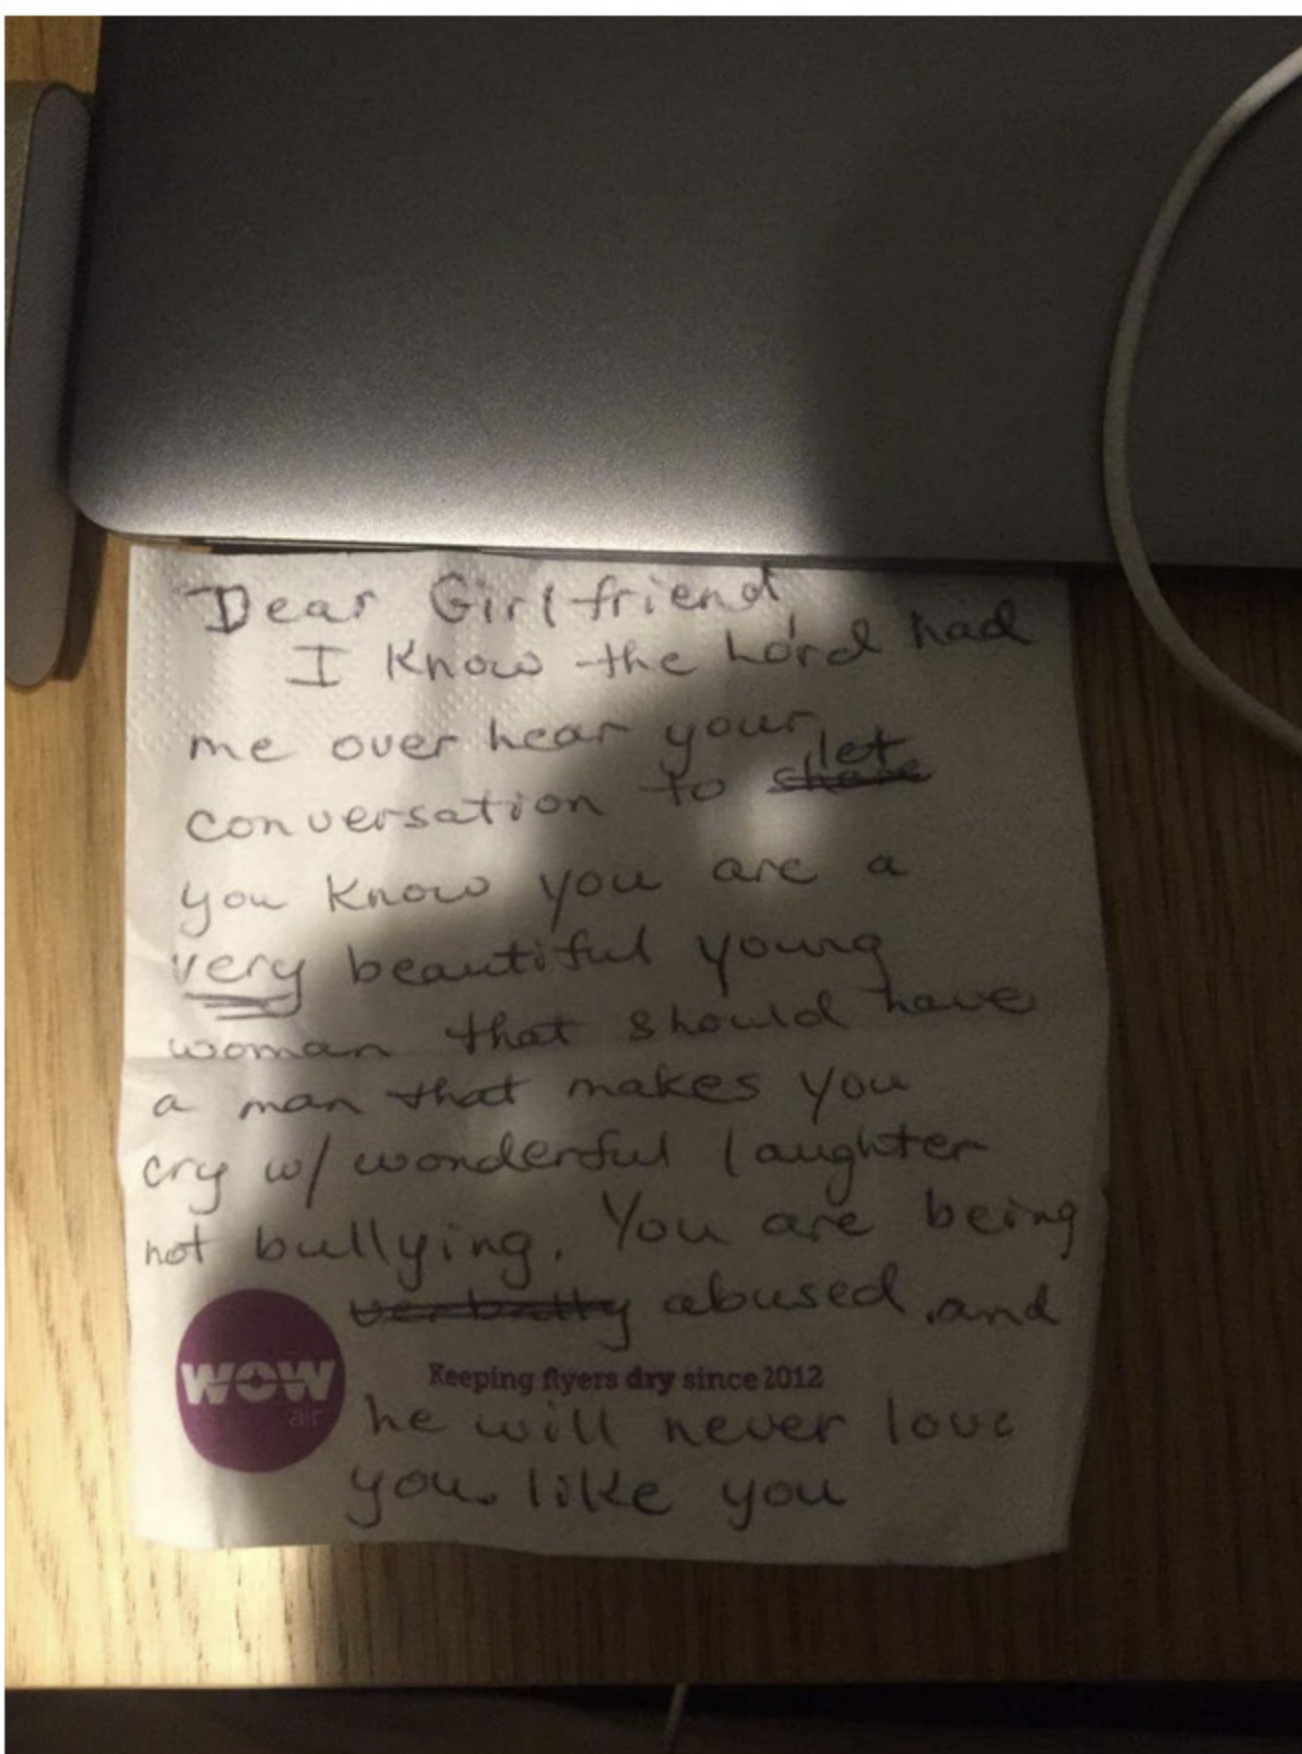 Dear Girlfriend,
I know the Lord had
me over hear your
conversation to let
you know you are a
very beautiful young
woman that should have
a man that makes you
cry w/ wonderful laughter
not bullying. You are being
verbally abused and
WOW
air
Keeping flyers dry since 2012
he will never love
you. like you